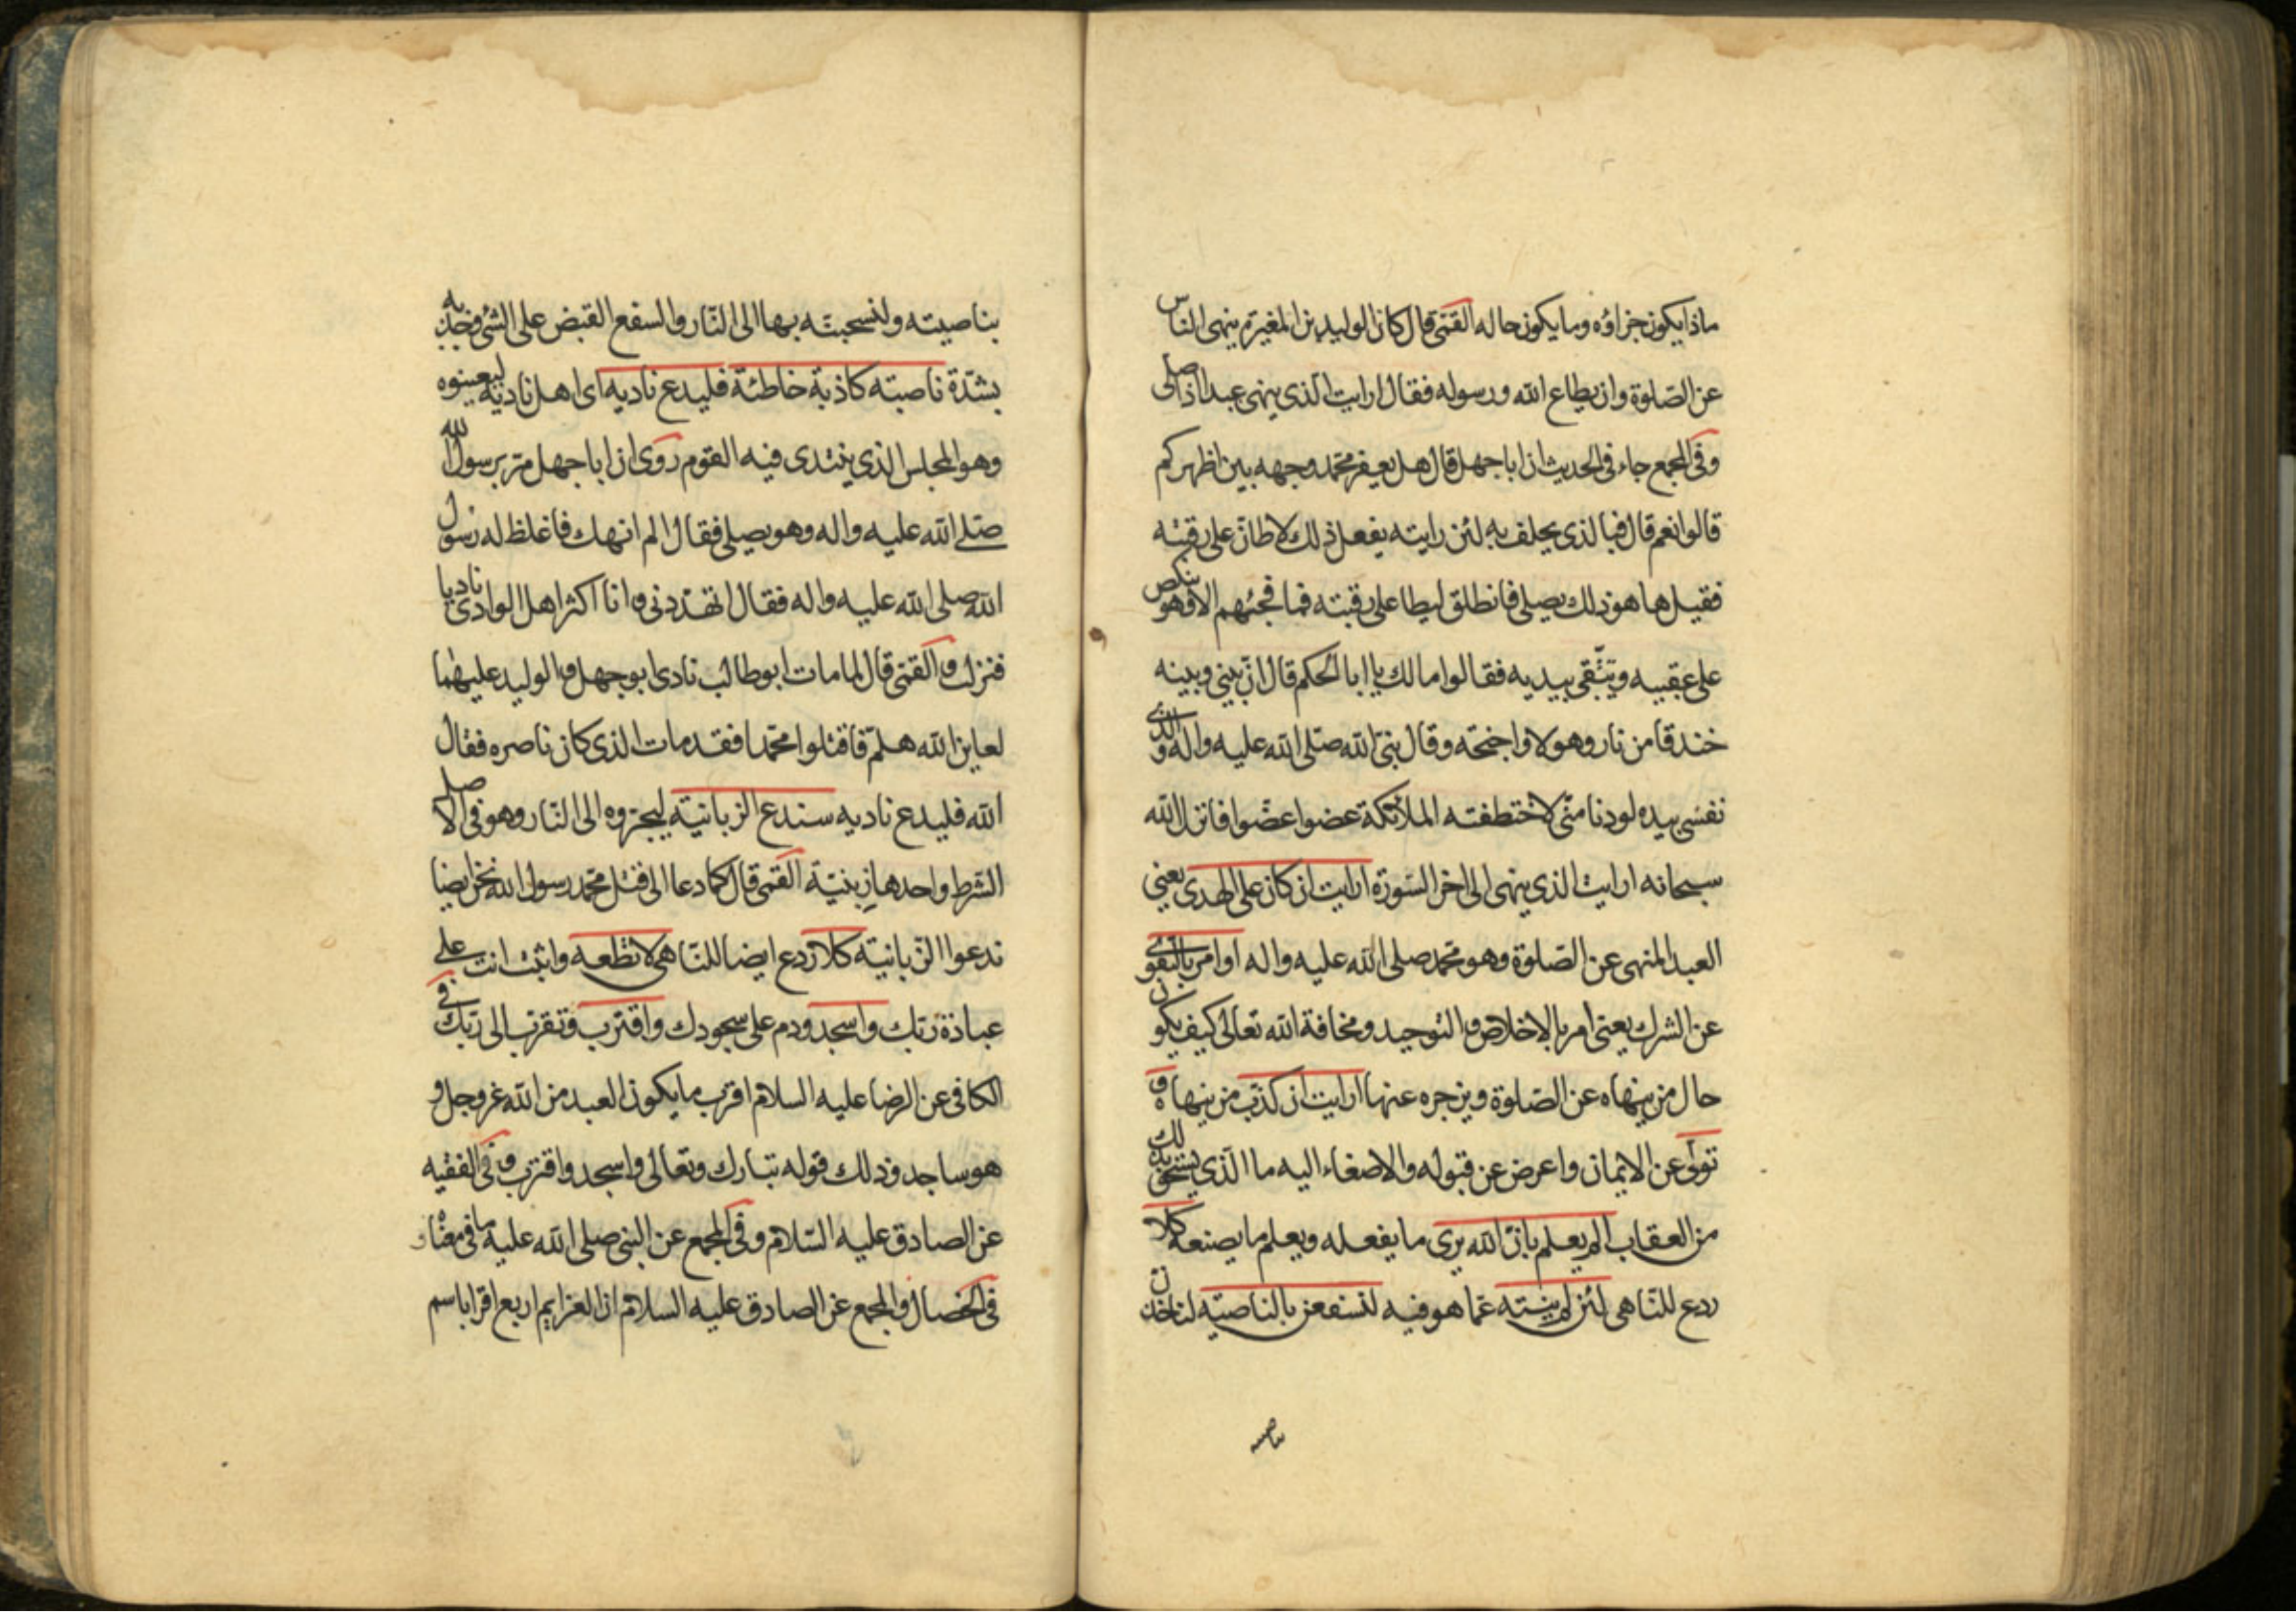 ماذا يكون جزاؤه وما يكون حاله القمّى قال كان الوليد بن المغيرة ينهى الناس
عن الصّلوة وان يطاع الله ورسوله فقال ارايت الّذى ينهى عبدا اذا صلى
وفى المجمع جاء فى الحديث ان ابا جهل قال هل يعفر محمّد وجهه بين اظهركم
قالوا نعم قال فبالذى يحلف به لئن رايته يفعل ذلك لاطانّ على رقبته
فقيل ها هو ذلك يصلى فانطلق ليطا على رقبته فما فجئهم الا وهو ينكص
على عقبيه ويتّقى بيديه فقالوا مالك يا ابا الحكم قال انّ بينى وبينه
خندقا من نار وهولا واجنحة وقال نبىّ الله صلّى الله عليه واله والذى
نفسى بيده لو دنا منّى لاختطفته الملائكة عضوا عضوا فانزل الله
سبحانه ارايت الذى ينهى الى اخر السّورة ارايت ان كان على الهدى يعنى
العبد المنهى عن الصّلوة وهو محمّد صلى الله عليه واله او امر بالتقوى
عن الشرك يعنى امر بالاخلاص والتوحيد ومخافة الله تعالى كيف يكون
حال من ينهاه عن الصّلوة ويزجره عنها ارايت ان كذّب من ينهاه و
تولّى عن الايمان واعرض عن قبوله والاصغاء اليه ما الّذى يستحق بذلك
من العقاب الم يعلم بانّ الله يرى ما يفعله ويعلم ما يصنعه كلا
ردع للنّاهى لئن لم ينته عمّا هو فيه لنسفعن بالناصية لناخذن
بناصيته
بناصيته ولنسحبنّه بها الى النّار والسفع القبض على الشئ وجذبه
بشدّة ناصيته كاذبة خاطئة فليدع ناديه اى اهل ناديه ليعينوه
وهو المجلس الذى ينتدى فيه القوم روى ان ابا جهل مرّ برسول الله
صلّى الله عليه واله وهو يصلى فقال الم انهك فاغلظ له رسول
الله صلى الله عليه واله فقال تهدّدنى وانا اكثر اهل الوادى ناديا
فنزلت والقمّى قال لما مات ابو طالب نادى ابو جهل والوليد عليهما
لعاين الله هلمّ فاقتلوا محمّدا فقد مات الذى كان ناصره فقال
الله فليدع ناديه سندع الزبانية ليجروه الى النّار وهو فى الاصل
الشرط واحدها زبنية القمّى قال كما دعا الى قتل محمّد رسول الله نحن ايضا
ندعوا الزبانية كلا ردع ايضا للنّاهى لا تطعه واثبت انت على
عبادة ربّك واسجد ودم على سجودك واقترب وتقرّب الى ربّك فى
الكافى عن الرضا عليه السلام اقرب ما يكون العبد من الله عز وجل و
هو ساجد وذلك قوله تبارك وتعالى واسجد واقترب وفى الفقيه
عن الصادق عليه السّلام وفى المجمع عن النبى صلى الله عليه ما فى معناه و
فى الخصال والمجمع عن الصادق عليه السلام ان العزايم اربع اقرا باسم